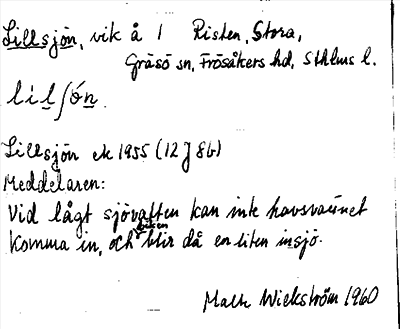 Lillsjön, vik å 1 Risten, Stora,
Gräsö sn, Frösåkers hd, Sthlms l.
lilʃó̱n.
Lillsjön ek 1955 (12 J 8b)
Meddelaren:
Vid lågt sjövatten kan inte havsvattnet
komma in, och viken blir då en liten insjö.
Wickström 1960